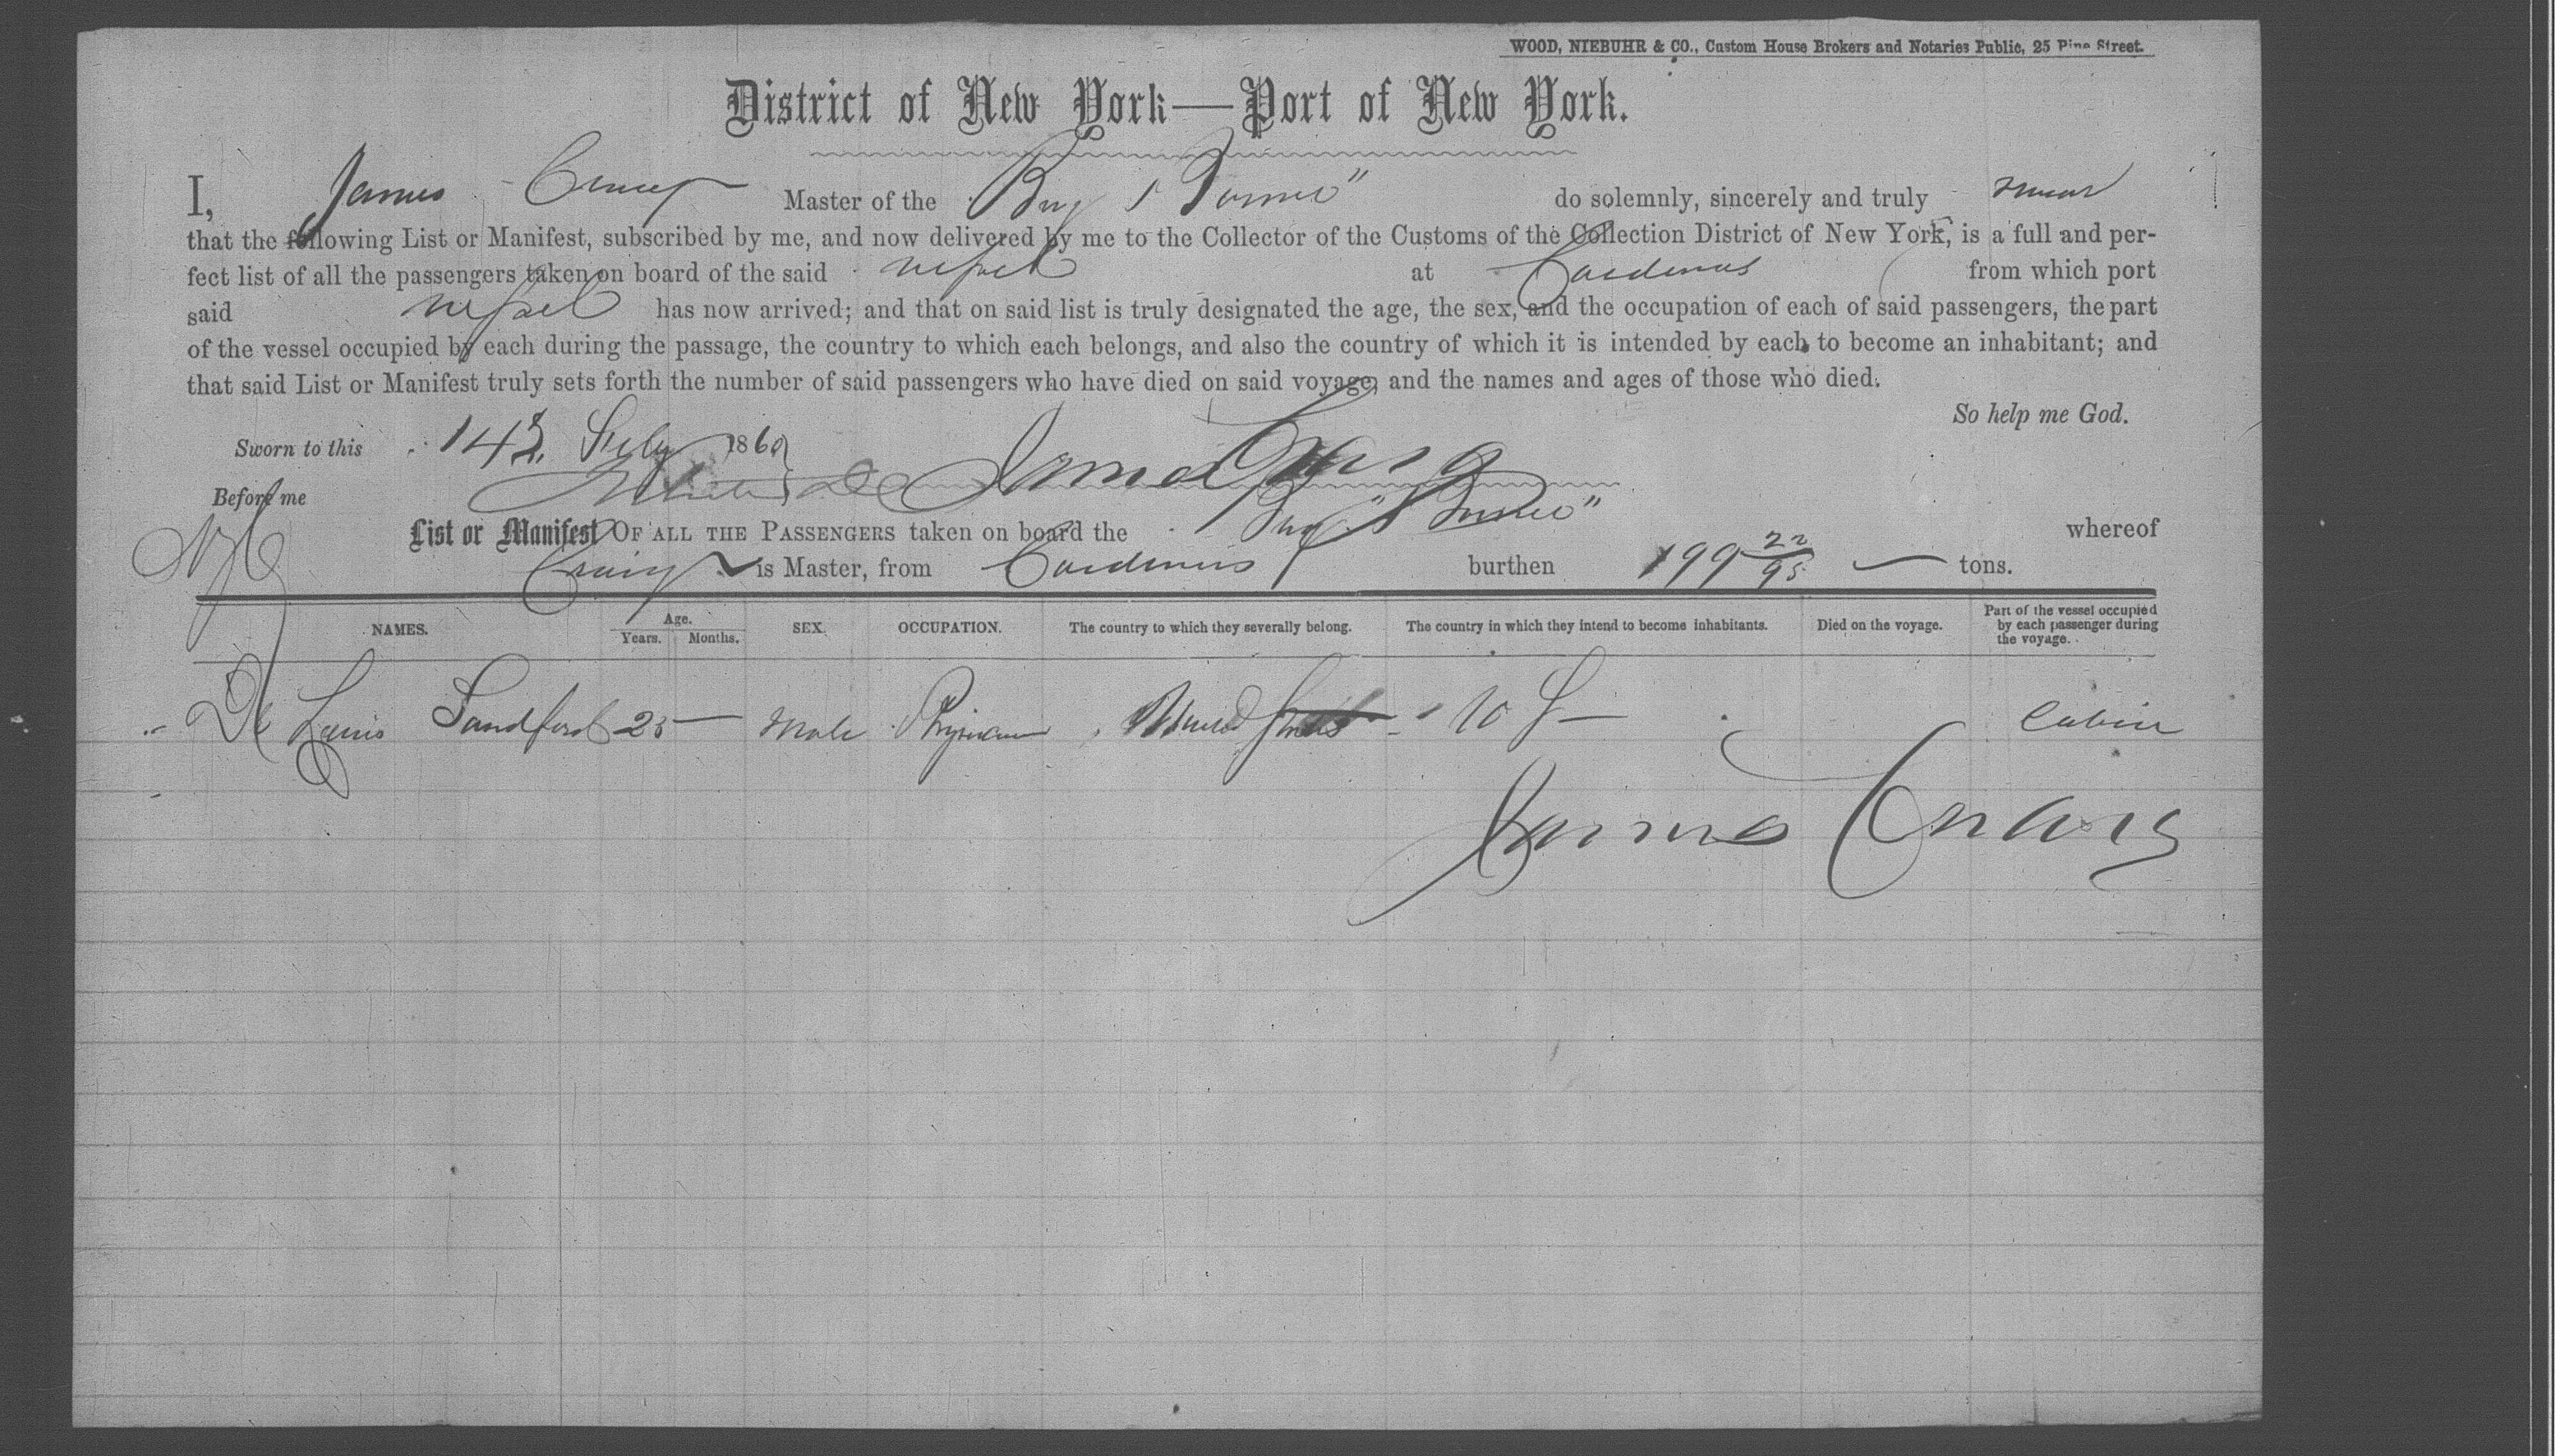 WOOD, NIEBUHR & CO., Custom House Brokers and Notaries Public, 25 Pine Street.
District of New York—Port of New York.
I, James Craig Master of the Brig do solemnly, sincerely and truly swear
that the following List or Manifest, subscribed by me, and now delivered by me to the Collector of the Customs of the Collection District of New York, is a full and per-
fect list of all the passengers taken on board of the said vessel at Cardenas from which port
said vessel has now arrived; and that on said list is truly designated the age, the sex, and the occupation of each of said passengers, the part
of the vessel occupied by each during the passage, the country to which each belongs, and also the country of which it is intended by each to become an inhabitant; and
that said List or Manifest truly sets forth the number of said passengers who have died on said voyage, and the names and ages of those who died.
So help me God.
Sworn to this 14 July 1860
Before me James Craig
List or Manifest OF ALL THE PASSENGERS taken on board the Brig whereof
Craig is Master, from Cardenas burthen 199 22/95 tons.
NAMES. Age. Years. Months. SEX. OCCUPATION. The country to which they severally belong. The country in which they intend to become inhabitants. Died on the voyage. Part of the vessel occupied by each passenger during the voyage.
Dr Lewis Sandford 25 — Male Physician United States U S — Cabin
James Craig